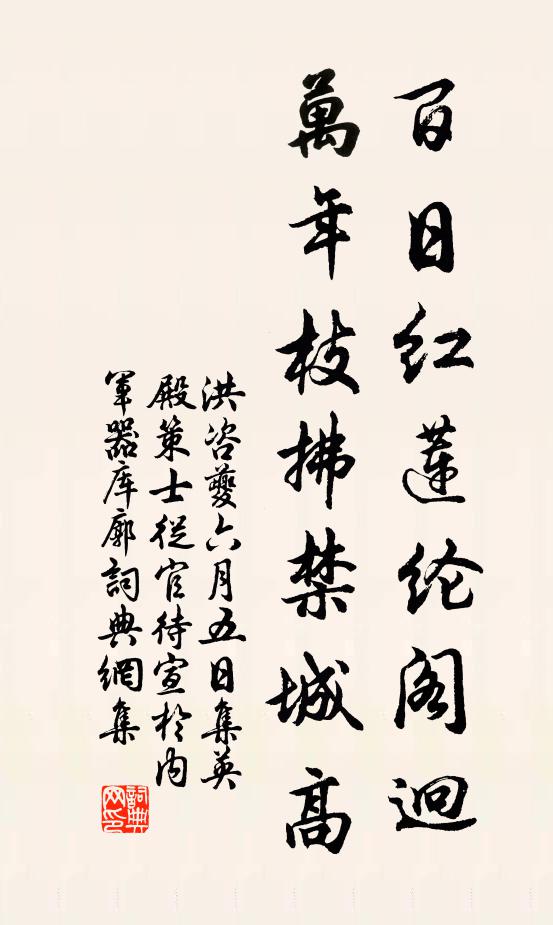 百日红蓮纶阁迥
萬年枝拂禁城高
洪咨夔六月五日集英
殿策士從官待宣於内
軍器库廊詞典網集
詞典网印